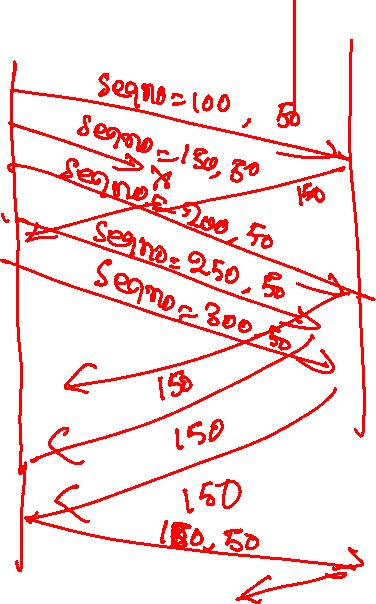 seqno=100, 50
seqno=150, 50
150
seqno=200, 50
seqno=250, 50
seqno=300, 50
150
150
150
150, 50